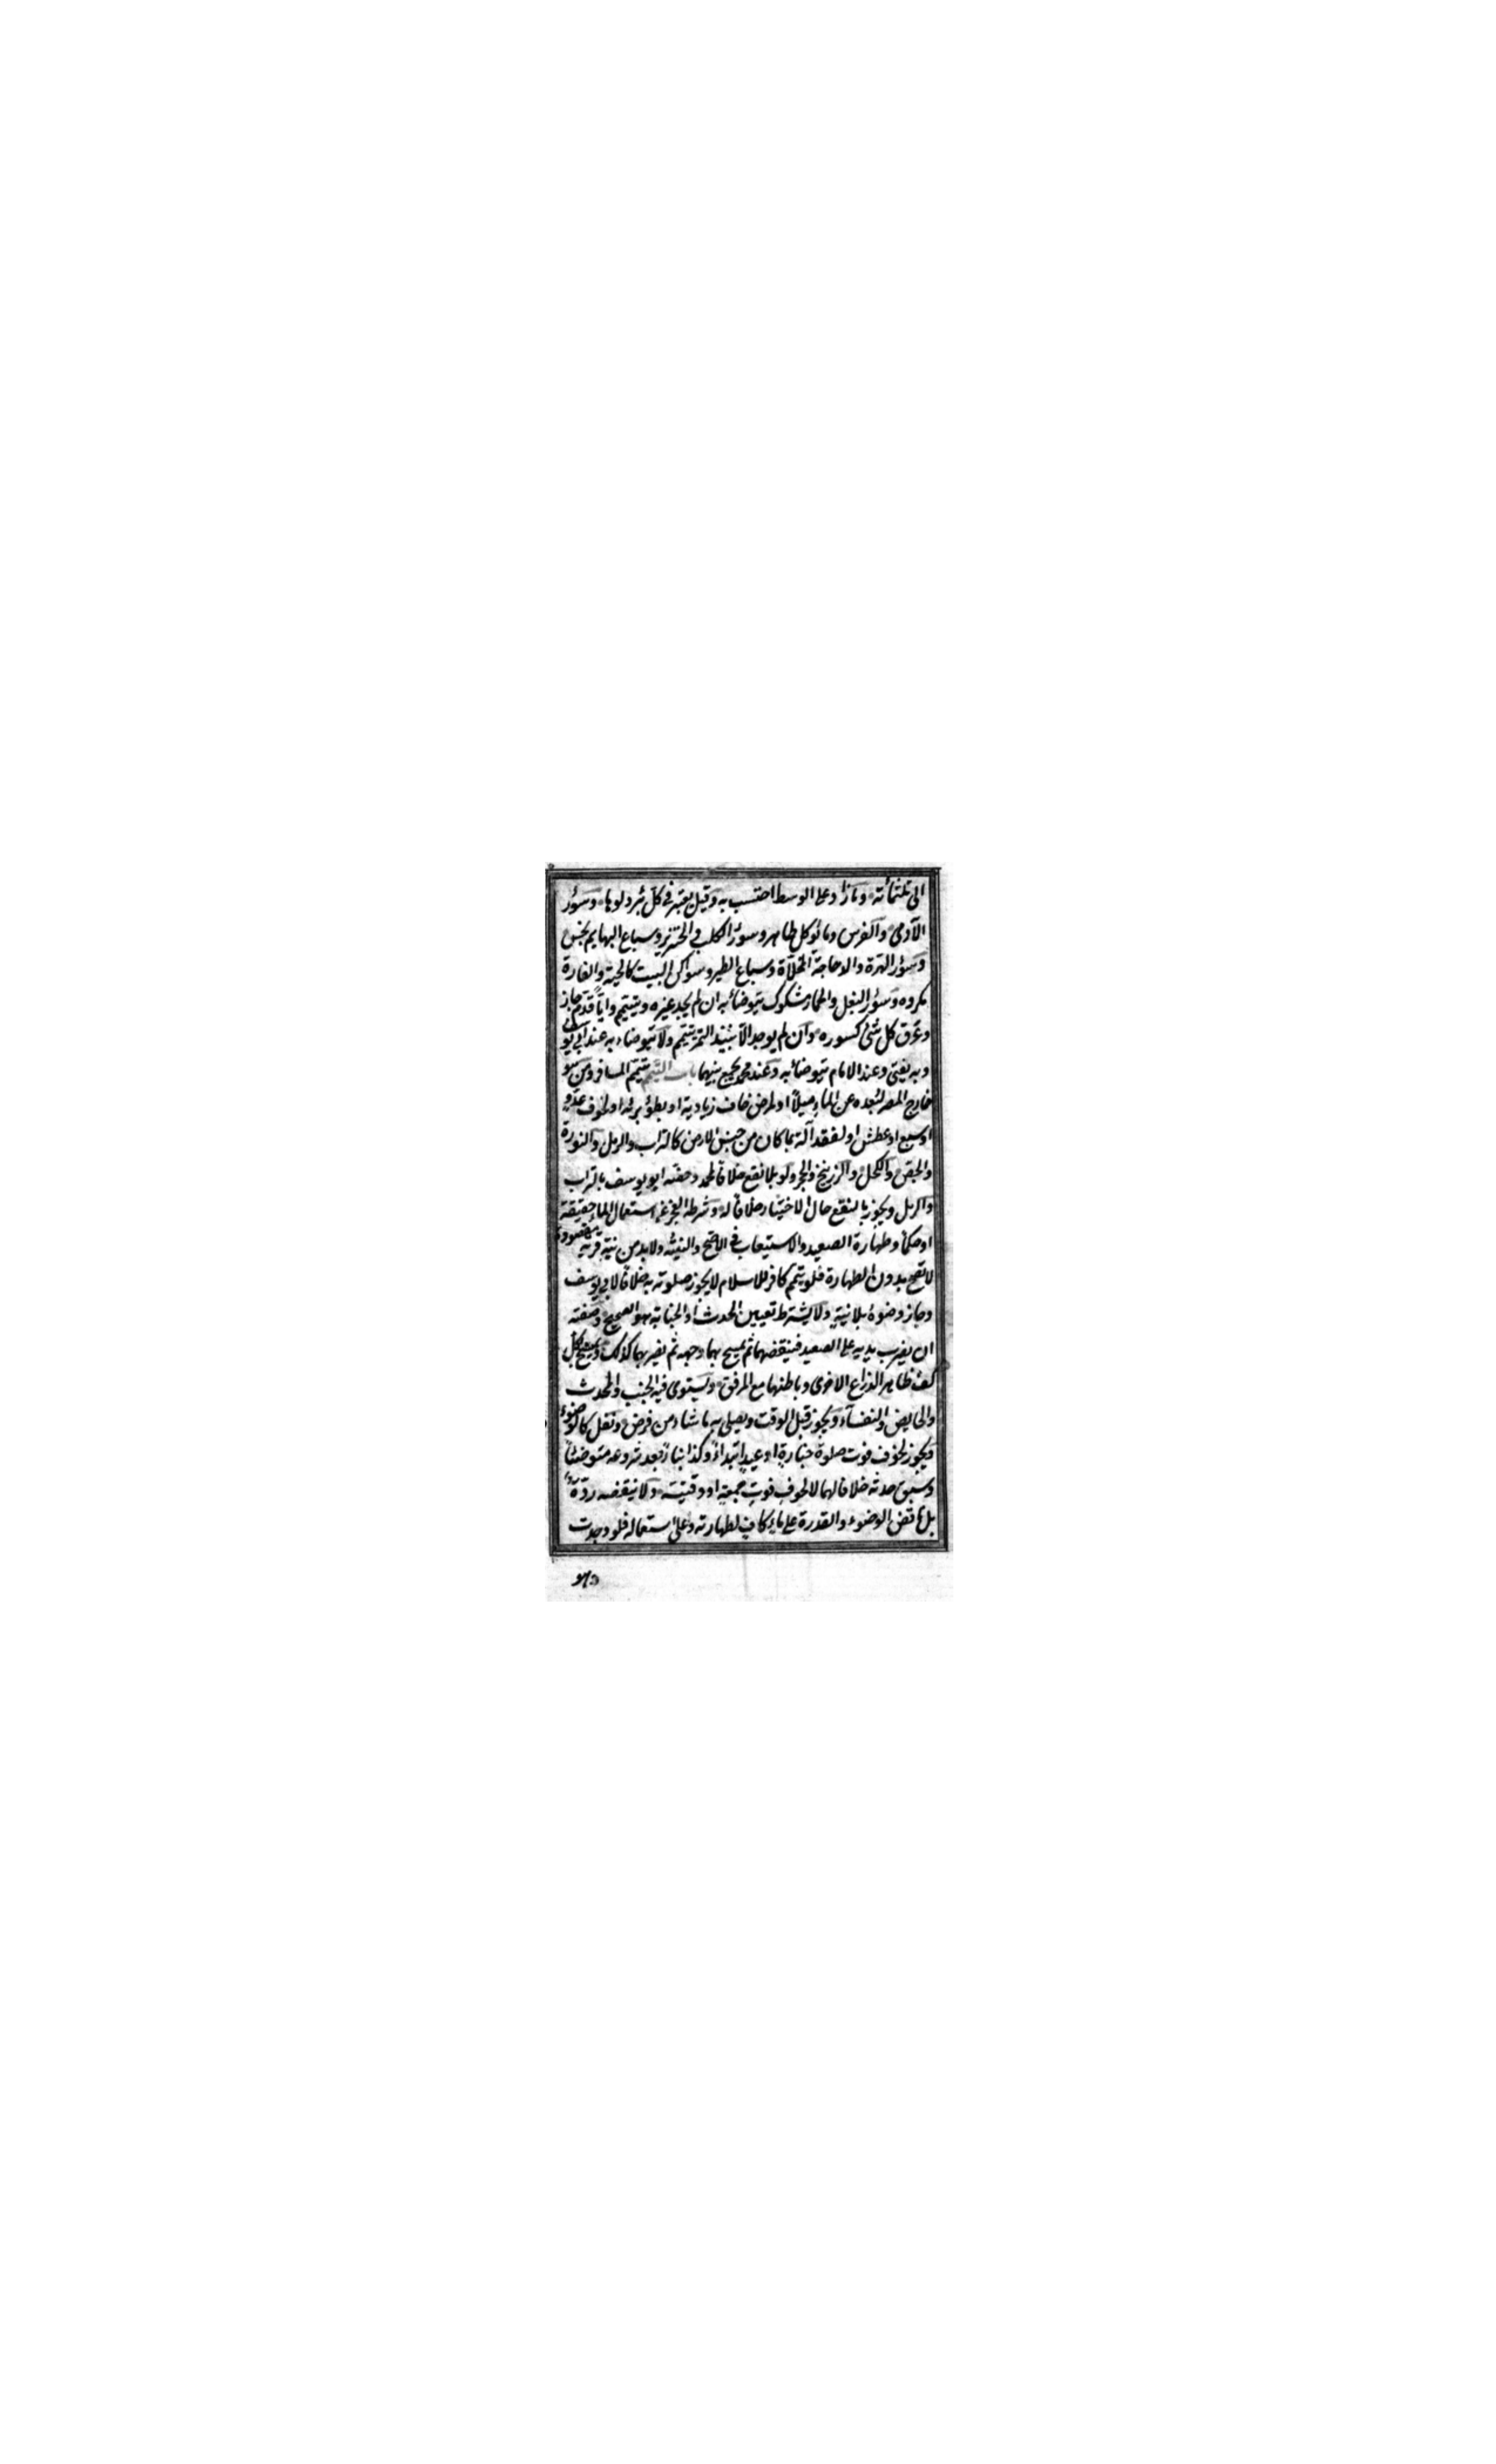 الى ثلثمائة وما زاد على الوسط احتسب به وقيل يعتبر في كل بئر دلوها وسؤر
الآدمى والفرس وما يؤكل طاهر وسؤر الكلب والخنزير وسباع البهايم نجس
وسؤر الهرة والدجاجة المخلاة وسباع الطير وسواكن البيت كالحية والفارة
مكروه وسؤر البغل والحمار مشكوك يتوضأ به ان لم يجد غيره ويتيمم وايا قدم جاز
وعرق كل شئ كسوره وان لم يوجد الا نبيذ التمر يتيمم ولا يتوضاء به عند ابى يوسف
وبه يفتى وعند الامام يتوضأ به وعند محمد يجمع بينهما باب التيمم يتيمم المسافر ومن هو
خارج المصر لبعده عن الماء ميلا او لمرض خاف زيادته او بطؤ برئه او لخوف عدو
او سبع او عطش او لفقد آلة بما كان من جنس الارض كالتراب والرمل والنورة
والجص والكحل والزرنيخ والحجر ولو بلا نقع خلافا لمحمد وخصه ابو يوسف بالتراب
والرمل ويجوز بالنقع حال الاختيار خلافا له وشرطه العجز عن استعمال الماء حقيقة
او حكما وطهارة الصعيد والاستيعاب في الاصح والنية ولا بد من نية قربة مقصودة
لا تصح بدون الطهارة فلو تيمم كافر للاسلام لا يجوز صلوته به خلافا لابي يوسف
وجاز وضوءه بلا نية ولا يشترط تعيين الحدث او الجنابة هو الصحيح وصفته
ان يضرب يديه على الصعيد فينفضهما ثم يمسح بهما وجهه ثم يضربهما كذلك ويمسح بكل
كف ظاهر الذراع الاخرى وباطنها مع المرفق ويستوى فيه الجنب والمحدث
والحايض والنفسآء ويجوز قبل الوقت ويصلى به ما شاء من فرض ونفل كالوضوء
ويجوز لخوف فوت صلوة جنازة او عيد ابتداء وكذا بناء بعد شروعه متوضئا
وسبق حدثه خلافا لهما لا لخوف فوت جمعة او وقتية ولا ينقضه ردة
بل ناقض الوضوء والقدرة على ماء كاف لطهارته وعلى استعماله فلو وجدت
وهو